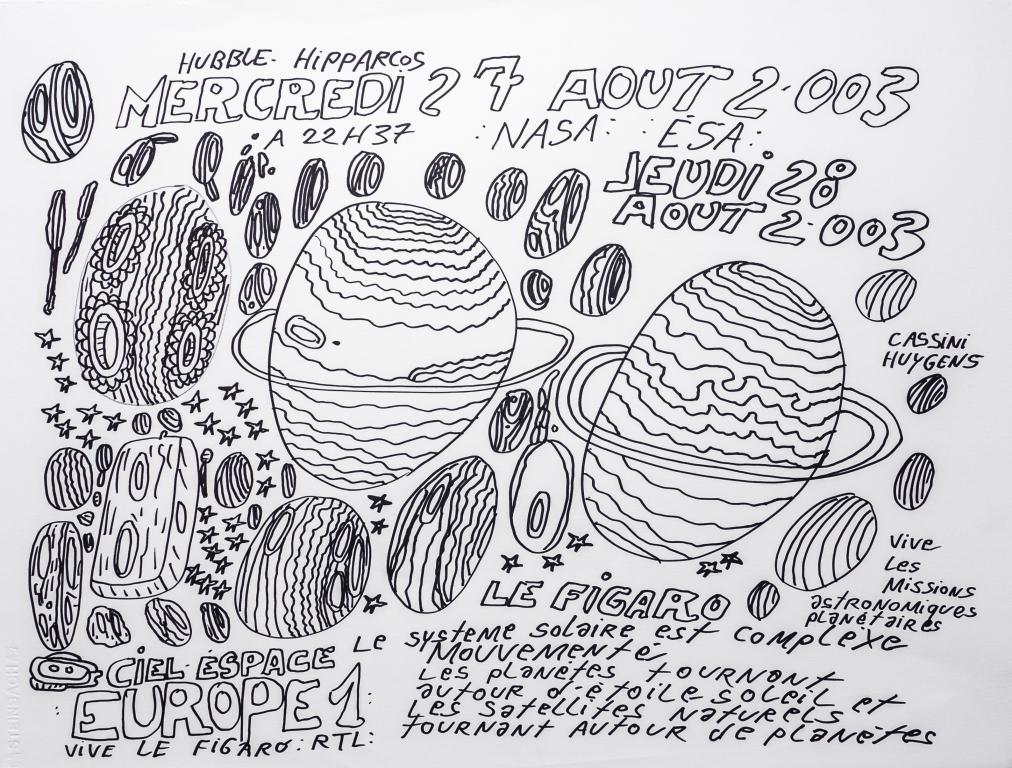 HUBBLE- HIPPARCOS
MERCREDI 27 AOUT 2.003
A 22H37 :NASA: :ESA:
JEUDI 28
AOUT 2.003
CASSINI
HUYGENS
Vive
Les
Missions
astronomiques
planétaires
LE FIGARO
Le systeme solaire est complexe
Mouvementé
Les planètes tournant
autour d'étoile soleil et
Les satellites naturels
tournant autour de planètes
CIEL-ESPACE
EUROPE 1:
VIVE LE FIGARO: RTL:
STEINBACH